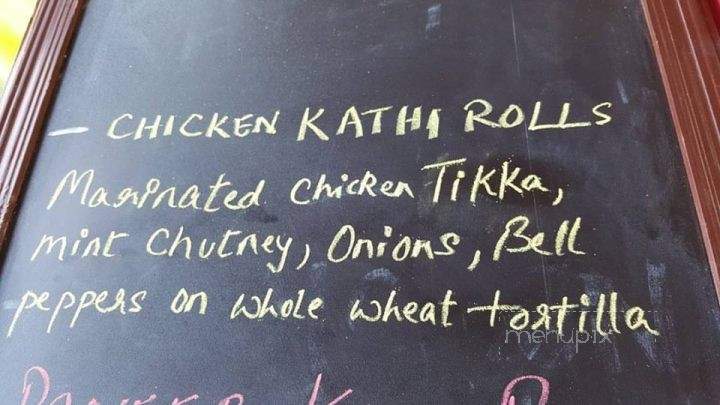 - CHICKEN KATHI ROLLS
Marinated chicken Tikka,
mint Chutney, Onions, Bell
peppers on whole wheat tortilla
menupix